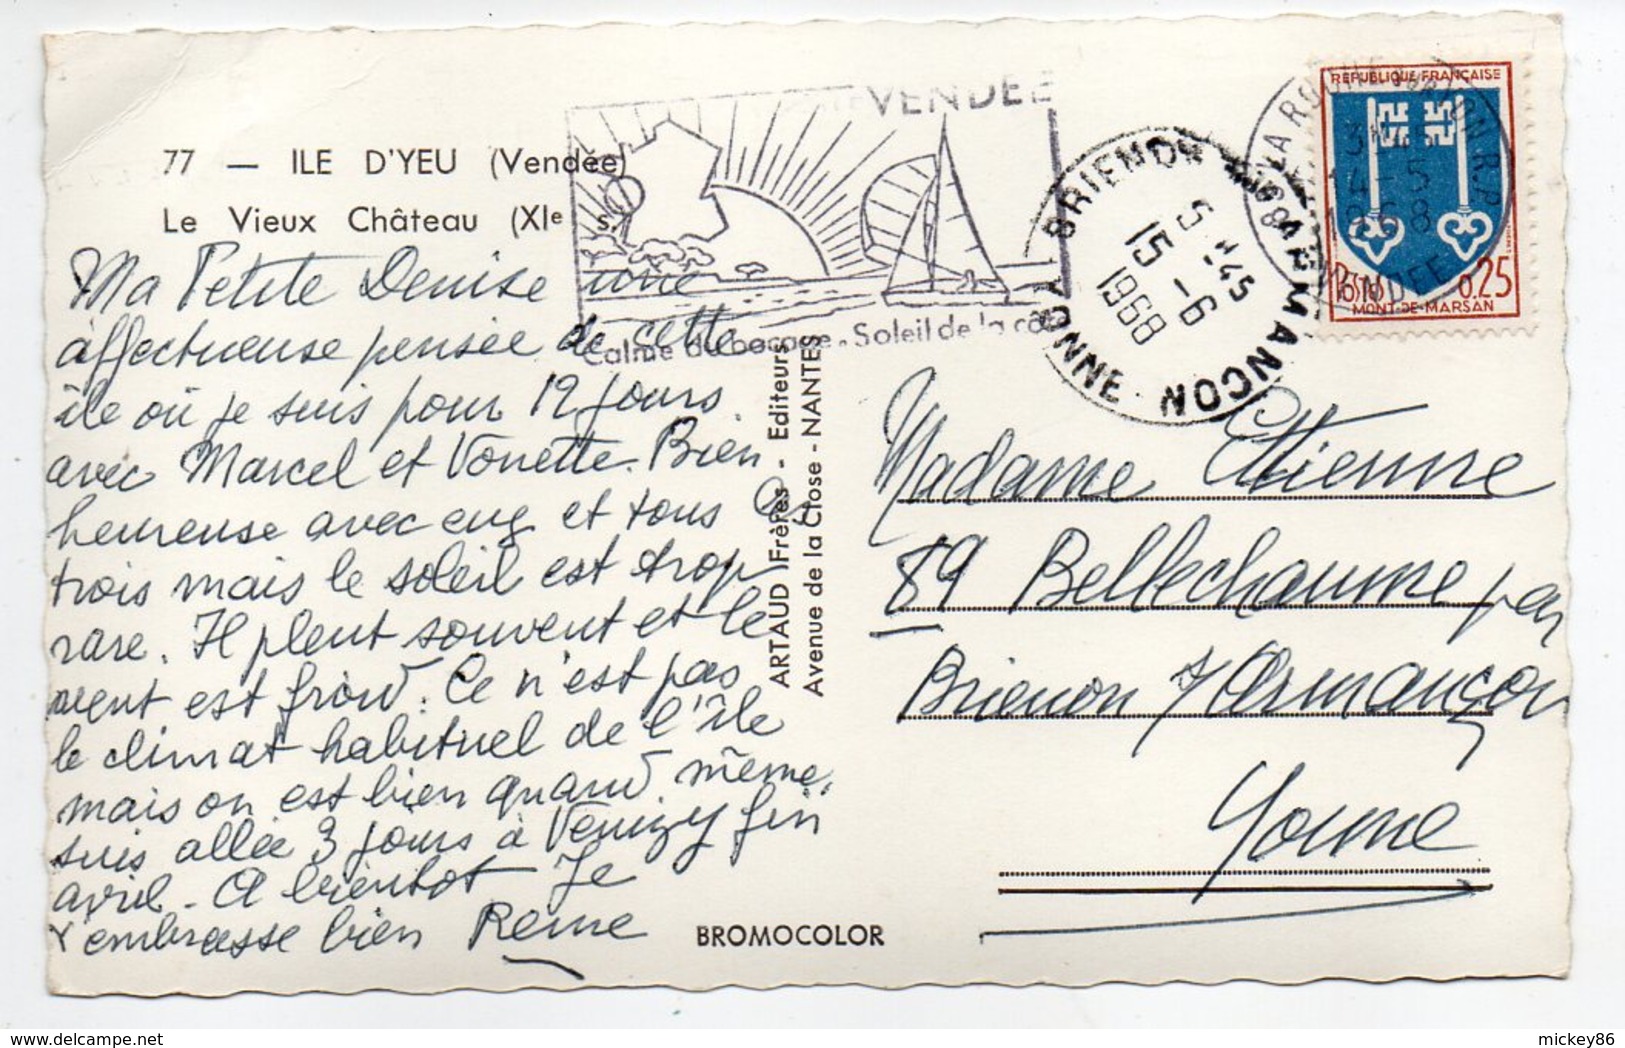 77 — ILE D'YEU (Vendée)
Le Vieux Château (XIe s.
Ma Petite Denise une
affectueuse pensée de cette
île où je suis pour 12 jours
avec Marcel et Vonette. Bien
heureuse avec eux et tous les
trois mais le soleil est trop
rare. Il pleut souvent et le
vent est froid. Ce n'est pas
le climat habituel de l'île
mais on est bien quand même.
suis allée 3 jours à Venizy fin
avril - A bientot Je
t'embrasse bien Reine
VENDÉE
Calme du bocage - Soleil de la côte
ARTAUD Frères - Editeurs
Avenue de la Close - NANTES
BROMOCOLOR
BRIENON SUR ARMANCON
YONNE
5 H45
15 -6
1968
LA ROCHE SUR YON R.P.
14-5
1968
VENDEE
REPUBLIQUE FRANÇAISE
0,25
MONT-DE-MARSAN
Madame Etienne
89 Bellechaume par
Brienon s/Armançon
Yonne
mickey86